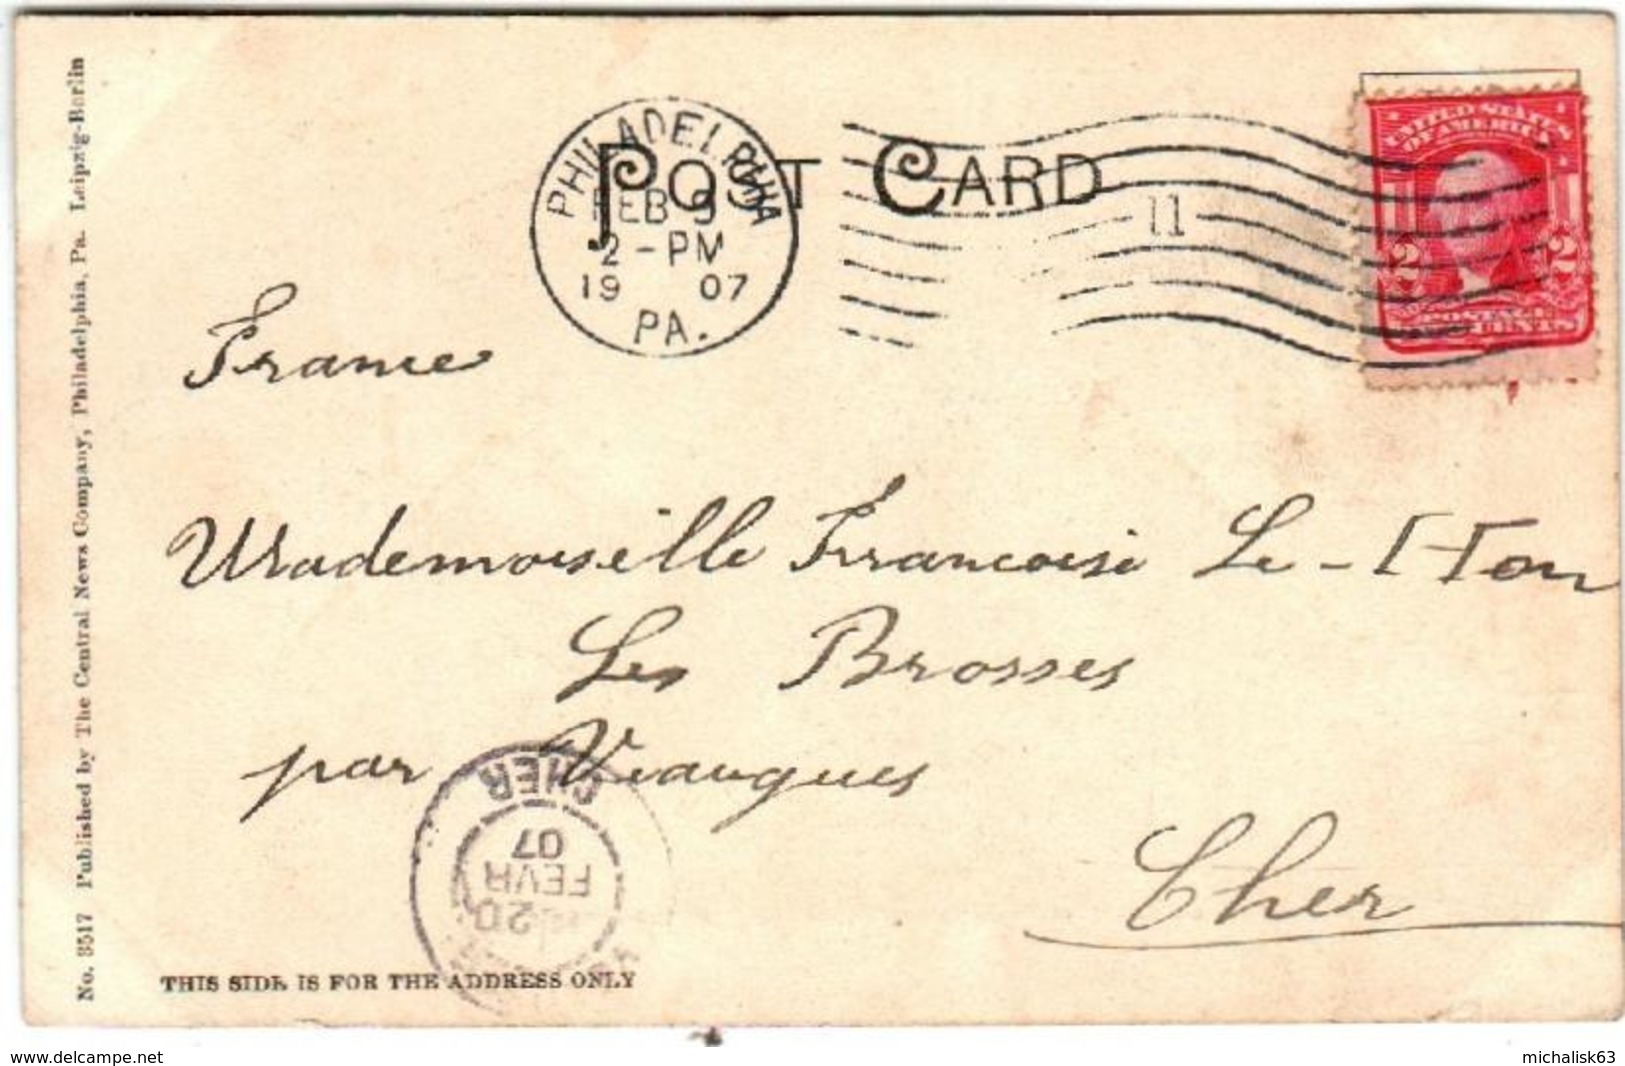 POST CARD
PHILADELPHIA
FEB 9
2-PM
19 07
PA.
11
UNITED STATES
OF AMERICA
2 2
POSTAGE
CENTS
France
Mademoiselle Francoise Le-
Les Brosses
par Veaugues
Cher
CHER
20
FEVR
07
THIS SIDE IS FOR THE ADDRESS ONLY
No. 3517 Published by The Central News Company, Philadelphia, Pa. Leipzig-Berlin
www.delcampe.net
michalisk63